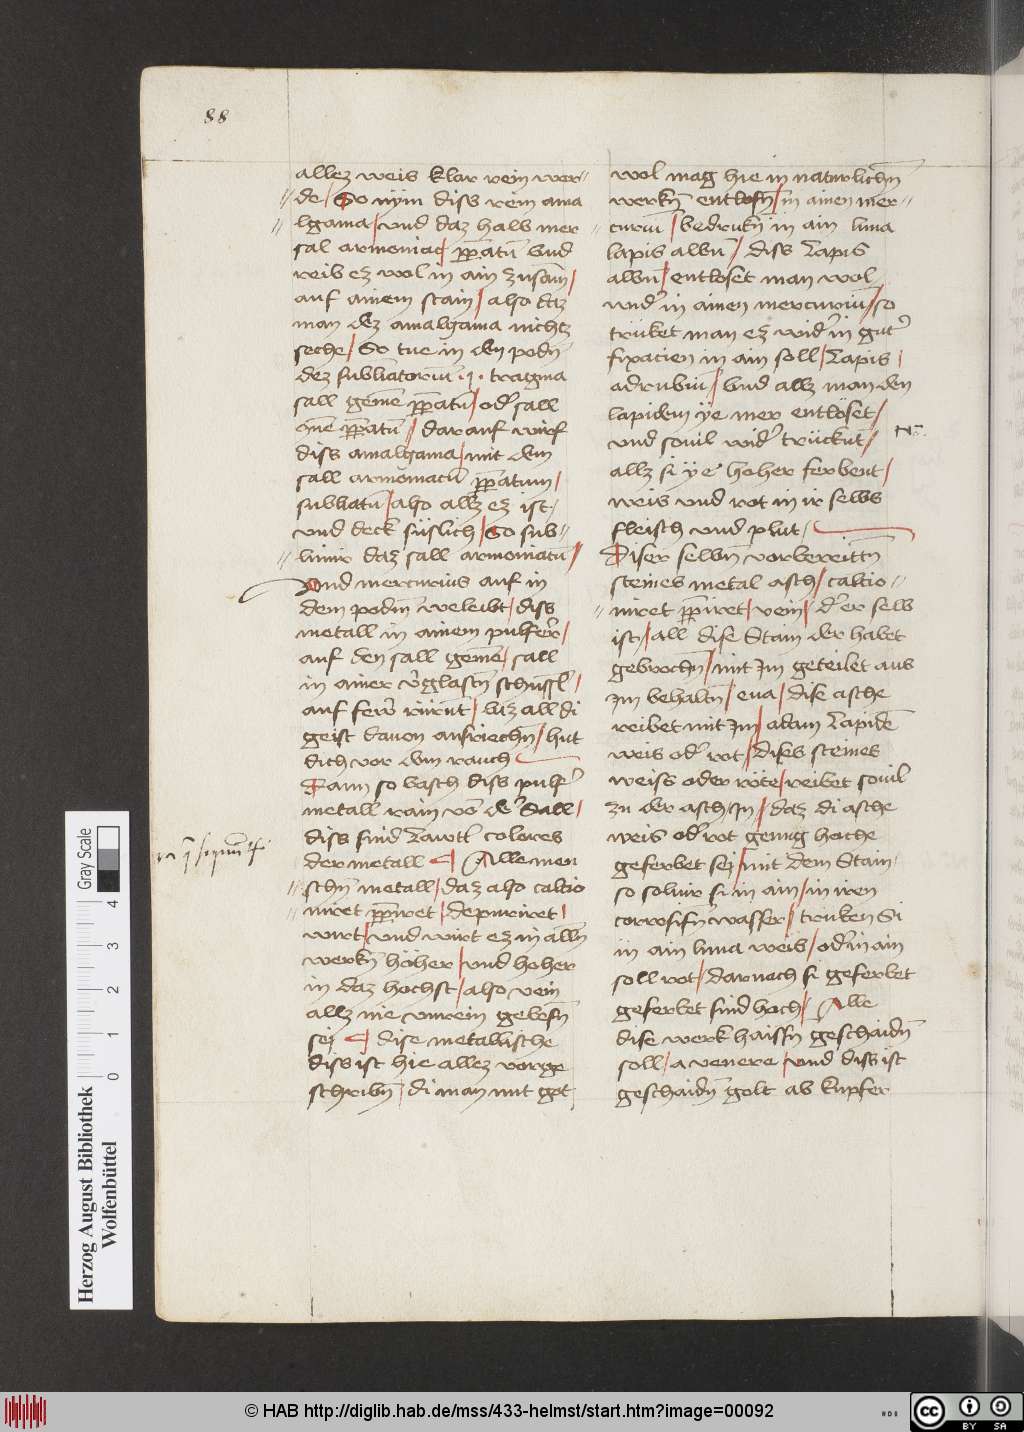 88
allez weis klar rein wer-
de / So nÿm diss rein ama
lgama / vnd daz halb mer
sal armoniac / pp̄atū vnd
reib ez wol in ain zusam̄ /
auf ainem stain / also daz
man dez amalgama nichtz
seche / So tue in den podn̄
dez subliatorium .ij. tragma
sall geme̅ pp̄atū / od' sall
pp̄atū / darauf wirf
diss amalgama / mit dem
sall armoniacū pp̄atum /
subliatū / also allz ez ist /
vnd deck süslich / So sub-
limir daz sall armoniacū /
Vnd mercurius auf in
dem podm̄ weleibt / diss
metall in ainem pulfer /
auf den sall geme̅ / sall
in ainer v'glastn̄ schüssl /
auf fewr rürnt / biz all di
geist dauon ausriechn̄ / hut
dich vor dem rauch
Kain so basch diss pulf'
metall rain vō de' Sall /
diss sind
colores
der metall ¶ Alle men
schn̄ metall / daz also calcio
niret pp̄iret / depuriret /
wirt / vnd wirt ez in alln̄
werkn̄ höher / vnd hoher
in daz hochst / also rein
allz nie vnrein gebesn̄
sej ¶ dise metallische
diss ist hie allez vorge
schribn̄ / di man mit got
wol mag hie in naturlichn̄
werkn̄ entlosn̄ / in ainen mer-
curiū / bedrukn̄ in ain luna
lapis albū / diss Lapis
albū / entloset man wol
vnd' in ainen mercuriū / so
trüket man ez wid' in gut'
fixacien in ain soll / Lapis /
adrubiū / vnd allz man den
lapidem ÿe mer entlöset /
vnd souil wid' trückūt /
allz si ÿe hoher ferbent /
weis vnd rot in ir selbs
fleisch vnd plut /
Diser selbn̄ vorbereittn̄
steines metal asch / calcio-
niret pp̄iret / rein / d' er selb
ist / all dise Stain der habet
gebrochn̄ / mit Im geteilet aus
Im behaltn̄ / eua / dise asche
reibet mit Im / adam Lapidē
weis od' rot / dises steines
weiss oder röte / reibet souil
zu der asch In / daz di asche
weis od' rot genug hoche
geferbet sej / mit dem Stain
so soluir si in ain / in iren
corrosifn̄ wasser / truken Si
in ain luna weis / od' in ain
soll rot / darnach si geferbet
geferbet sind hoch / Alle
dise werk haissn̄ geschaidn̄
soll / a venere / vnd diss ist
geschaidn̄ golt ab kupfer
Herzog August Bibliothek
Wolfenbüttel
Gray Scale
0 1 2 3 4
© HAB http://diglib.hab.de/mss/433-helmst/start.htm?image=00092
cc BY SA